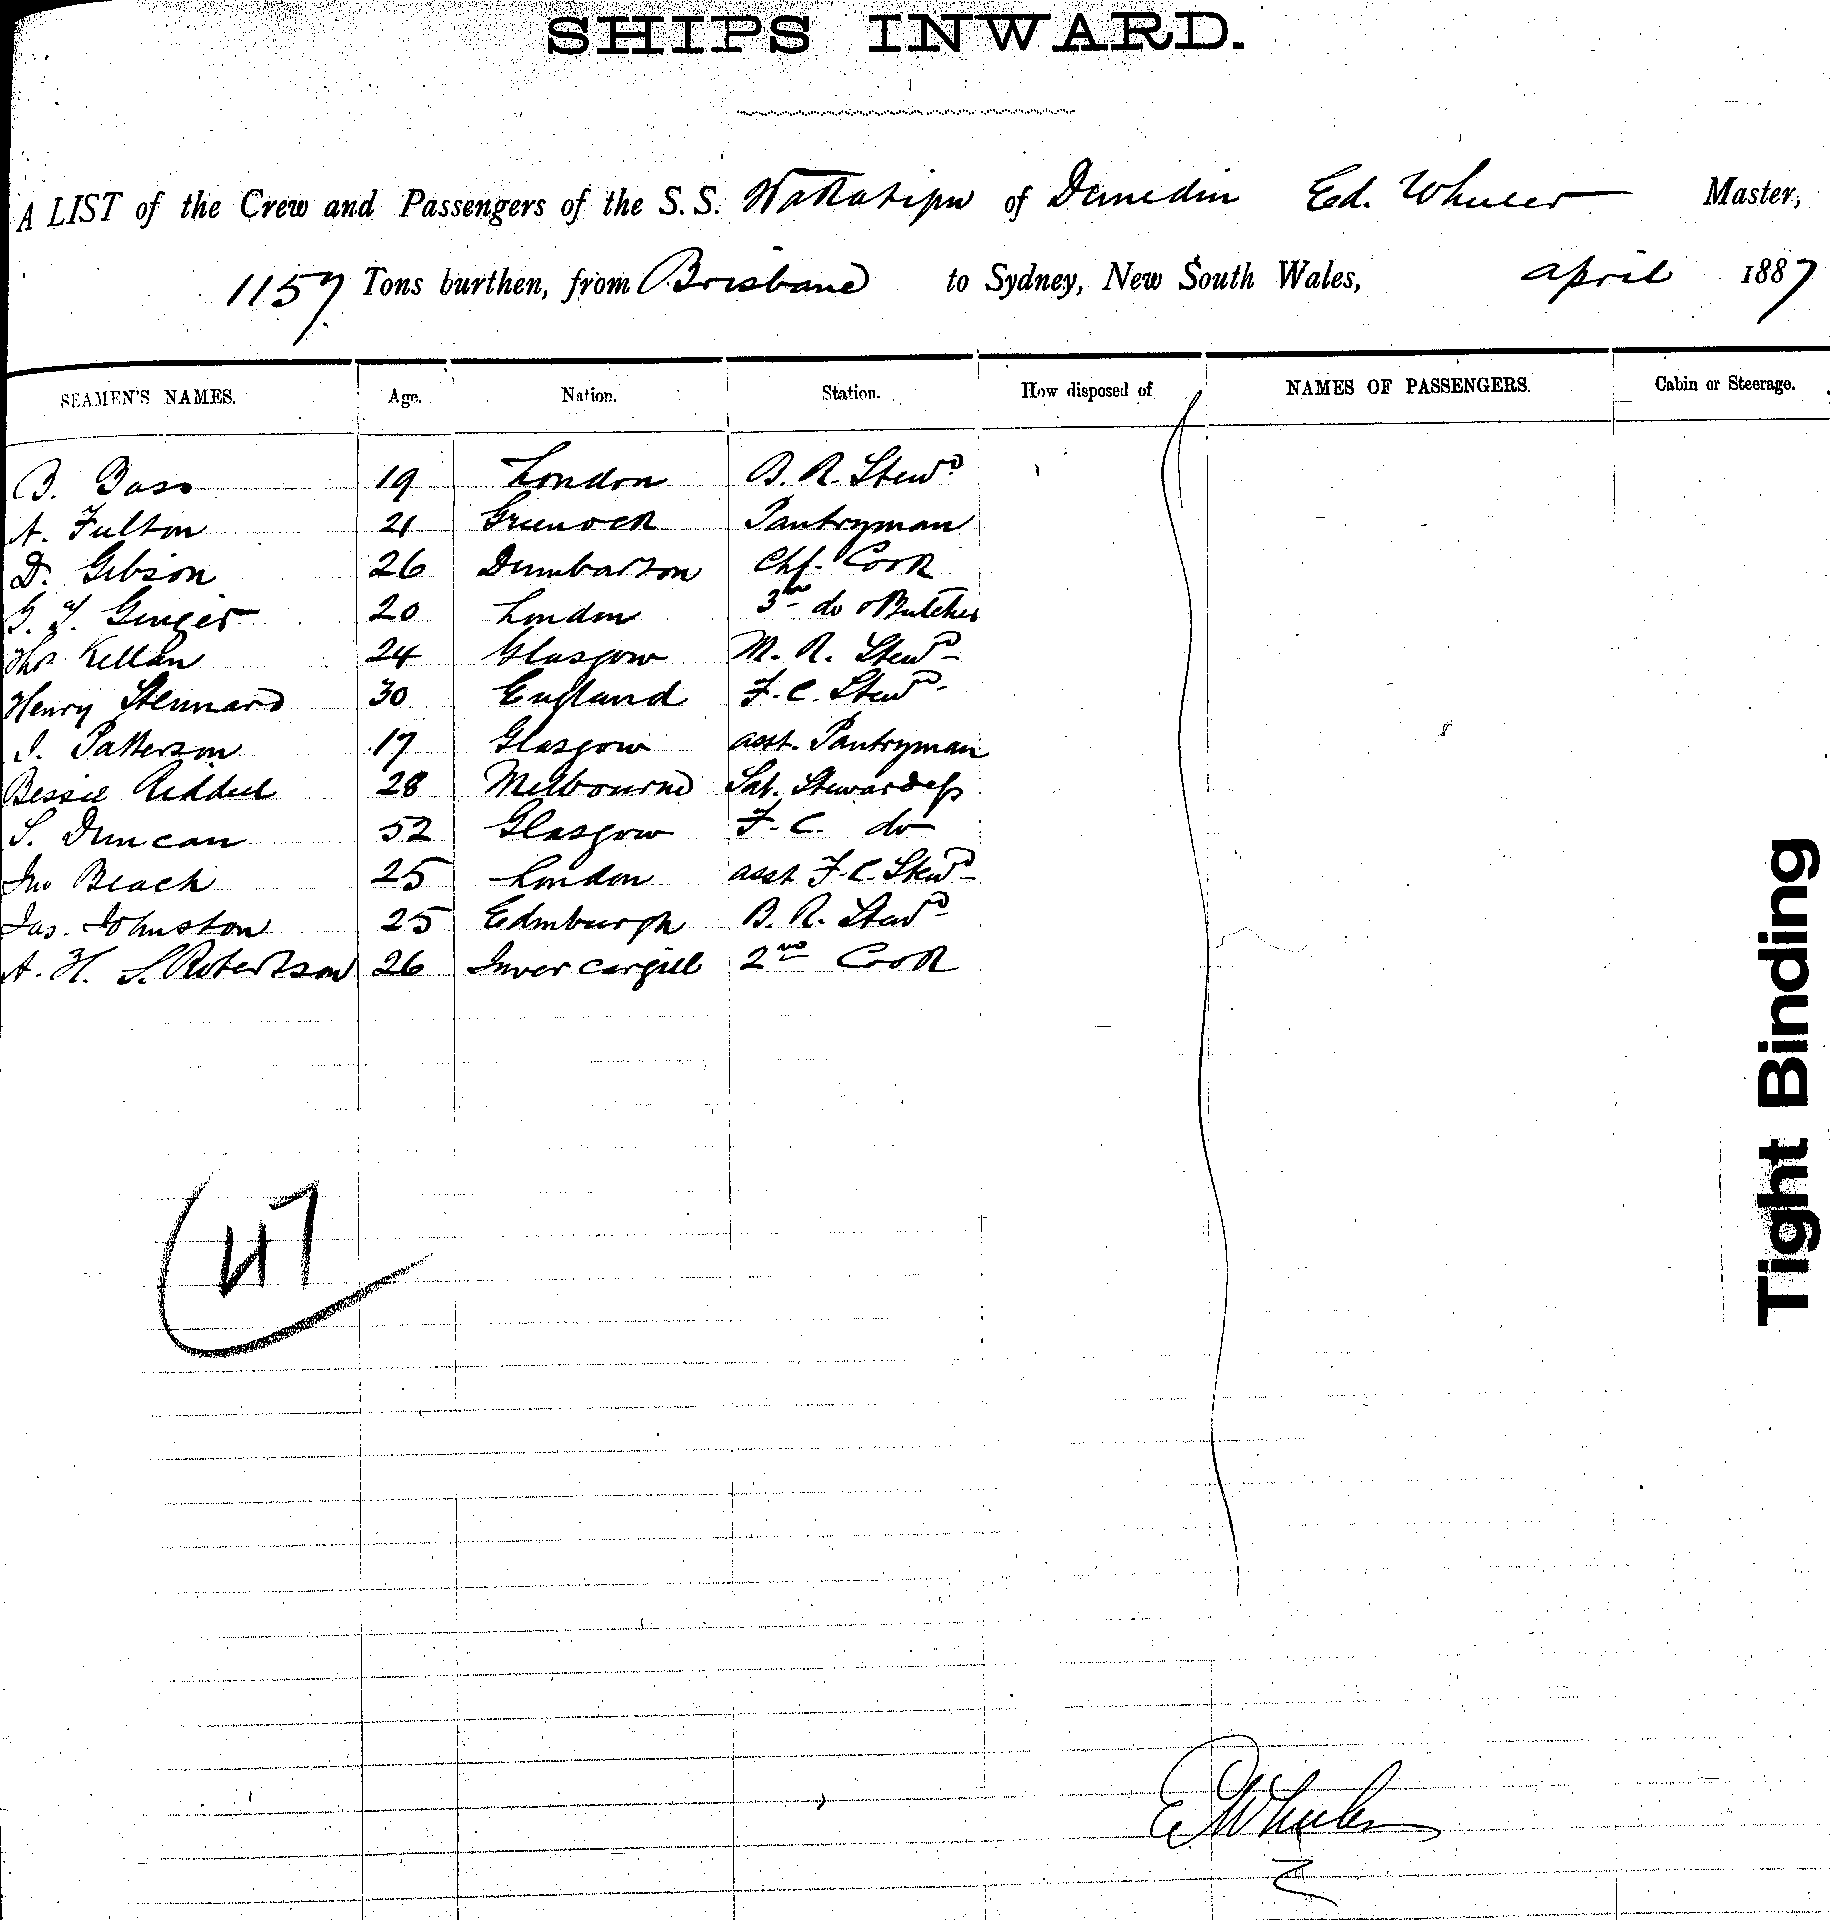 SHIPS INWARD.
A LIST of the Crew and Passengers of the S.S. Wakatipu of Dunedin Ed. Wheeler Master,
1157 Tons burthen, from Brisbane to Sydney, New South Wales, april 1887
SEAMEN'S NAMES. Age. Nation. Station. How disposed of NAMES OF PASSENGERS. Cabin or Steerage.
B. Bass 19 London B. R. Stewd
A. Fulton 21 Greenock Pantryman
D. Gibson 26 Dumbarton Chf. Cook
G. F. Ginger 20 London 3rd do & Butcher
Thos Kellan 24 Glasgow M. R. Stewd
Henry Stennard 30 England F. C. Stewd
J. Patterson 17 Glasgow asst. Pantryman
Bessie Riddell 28 Melbourne Sal. Stewardess
S. Duncan 52 Glasgow F. C. do
Jno Beach 25 London asst F. C. Stewd
Jas. Johnston 25 Edinburgh B. R. Stewd
A. H. S. Robertson 26 Invercargill 2nd Cook
47
Tight Binding
E Wheeler